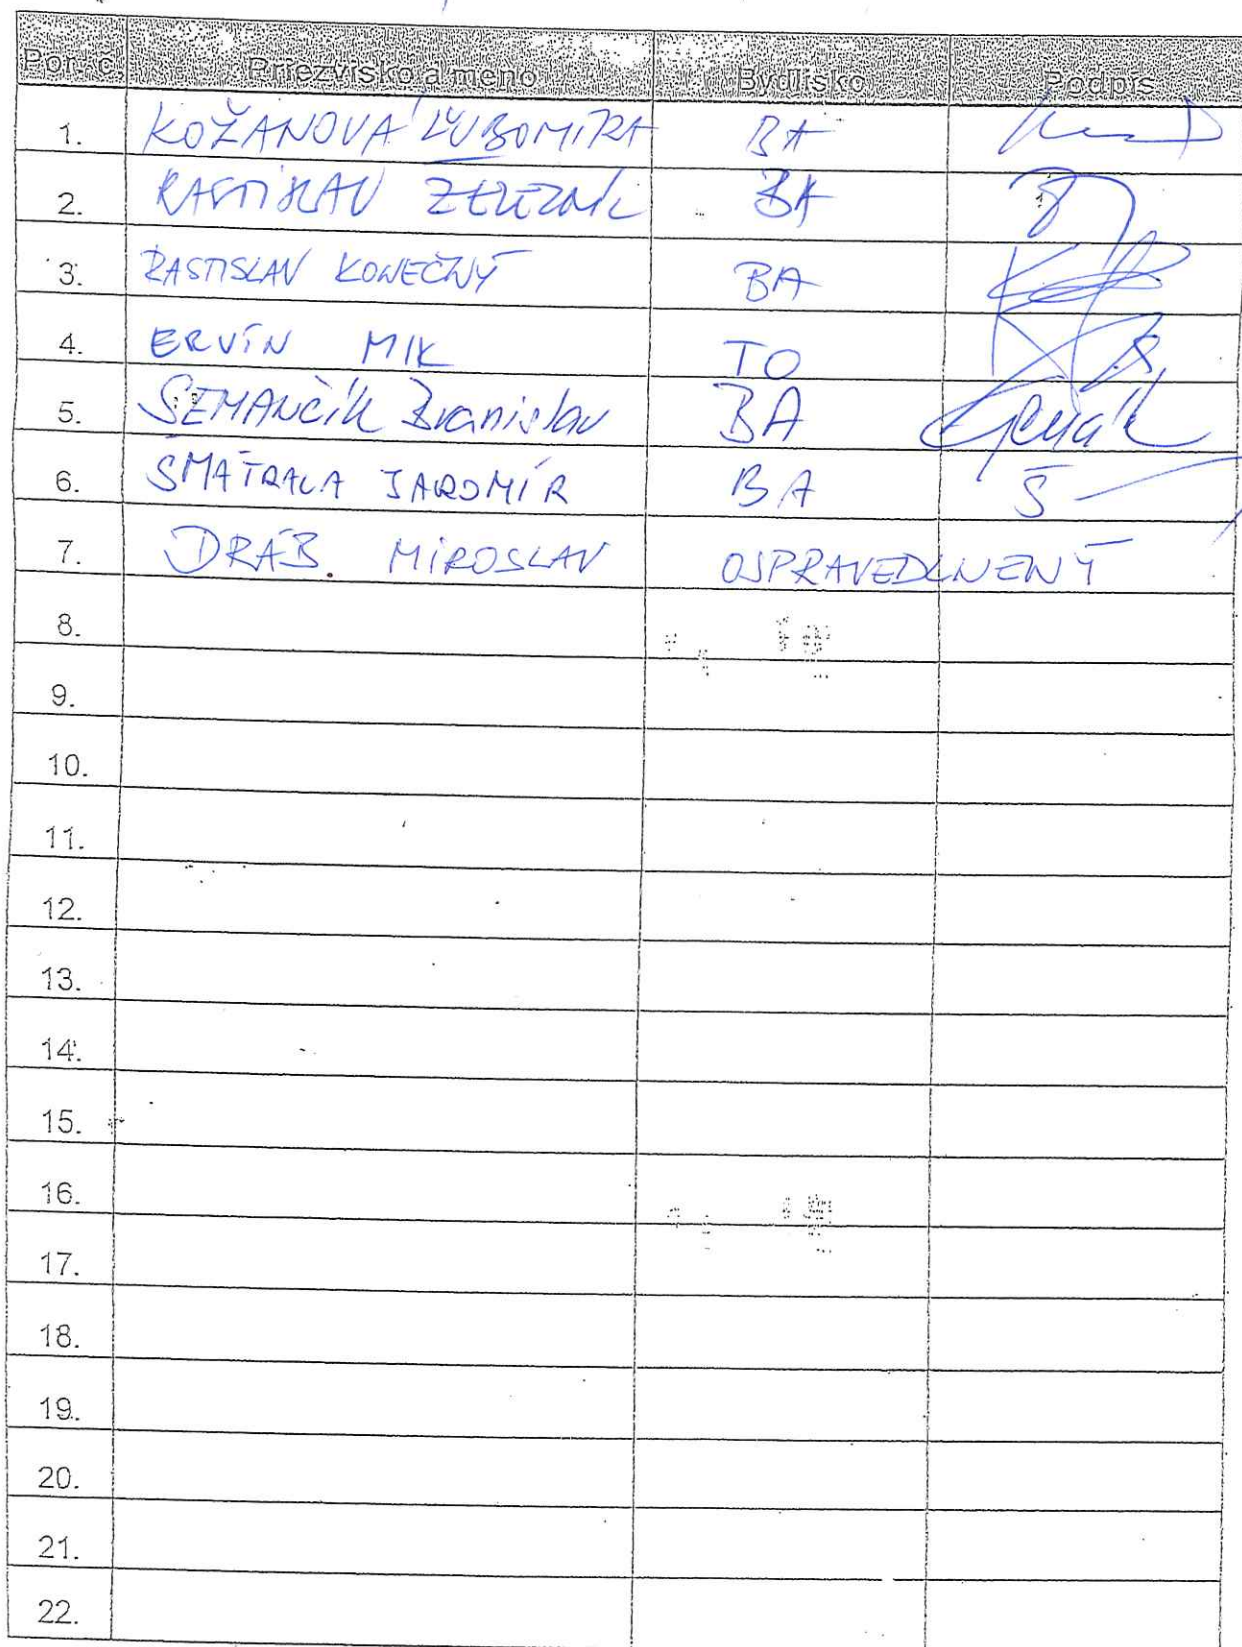 Por. č. Priezvisko a meno Bydlisko Podpis
1. KOŽANOVÁ ĽUBOMÍRA BA
2. RASTISLAV ŽELEZNÍK BA
3. RASTISLAV KONEČNÝ BA
4. ERVÍN MIK TO
5. SEMANČÍK Branislav BA
6. SMATRALA JAROMÍR BA Š
7. DRÁB. MIROSLAV OSPRAVEDLNENÝ
8.
9.
10.
11.
12.
13.
14.
15.
16.
17.
18.
19.
20.
21.
22.